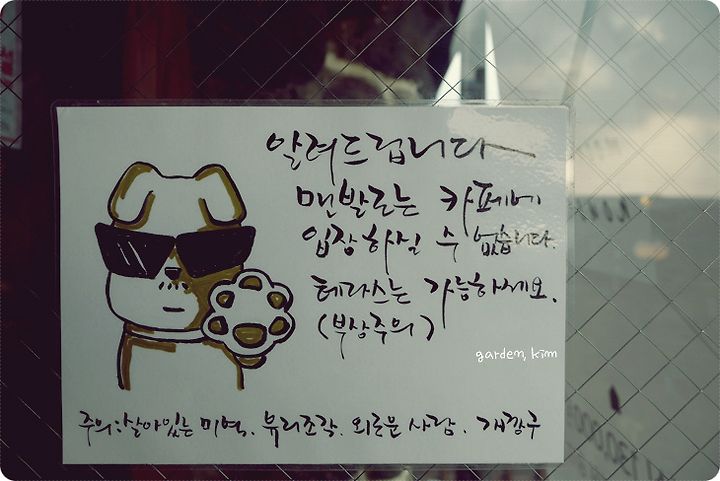 알려드립니다
맨발로는 카페에
입장하실 수 없습니다.
테라스는 가능하세요.
(부상주의)
garden, kim
주의: 살아있는 미역, 유리조각, 외로운 사람, 개짱구